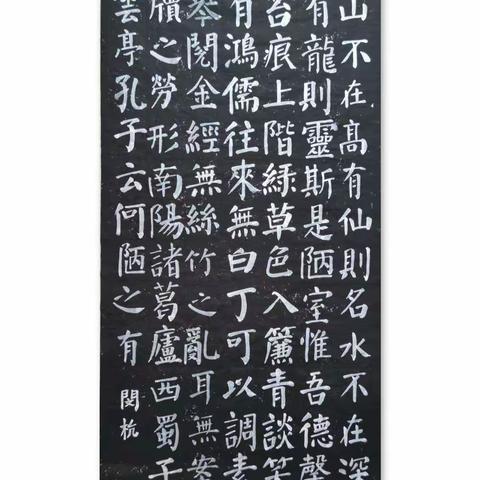 山不在高有仙則名水不在深
有龍則靈斯是陋室惟吾德馨
苔痕上階緑草色入簾青談笑
有鴻儒往來無白丁可以調素
琴閱金經無絲竹之亂耳無案
牘之勞形南陽諸葛廬西蜀子
雲亭孔子云何陋之有
閔杭